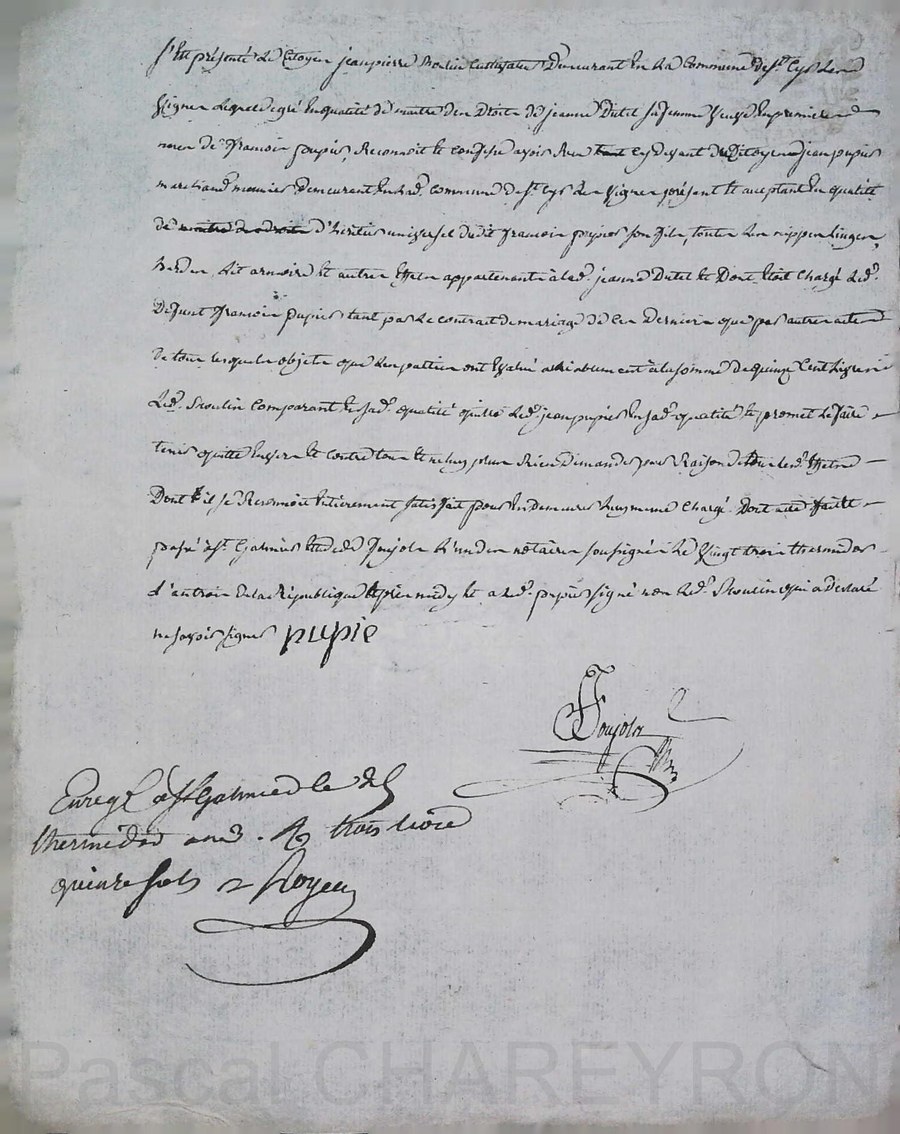 S'est présenté le Citoyen jean pierre Cultivateur Demeurant En La Commune de st Cyr les
vignes Lequel degré En qualité de maitre des Droits de jeanne Dutel sa femme veuve En premieres
noces de francois pupier, Reconnoit et confesse avoir Reçu cy devant du Citoyen jean pupier
marchand meunier demeurant En lad. commune de st Cyr les vignes présent et acceptant En qualité
de maitre des droits d'héritier universel dudit francois pupier son fils, toutes les nippes linges,
hardes, lit armoire et autres Effets appartenants à lad. jeanne Dutel et Dont Etoit Chargé led.
Defunt francois pupier tant par le contrat de mariage de ces Derniers que par autres actes
de tous lesquels objets que les parties ont Evalué à la somme de quinze Cent Livres
Led. Comparant En sad. qualité quitte led. jean pupier En sad. qualité Et promet le faire
tenir quitte Envers Et contre tous Et ne luy plus Rien Demander pour Raison desd. Effets
Dont il se Reconnoit Entierement satisfait pour En demeurer luy meme Chargé. Dont acte fait et
passé à st Galmier Etude de Joujola L'un des notaires soussignés Le vingt trois thermidor
L'an trois de la République après midy Et a led. pupier signé non led. qui a déclaré
ne savoir signer pupie
Joujola
Enregt à st Galmier le
thermidor an 3. R trois livres
quinze sols
Pascal CHAREYRON